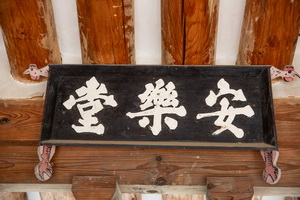 安樂堂